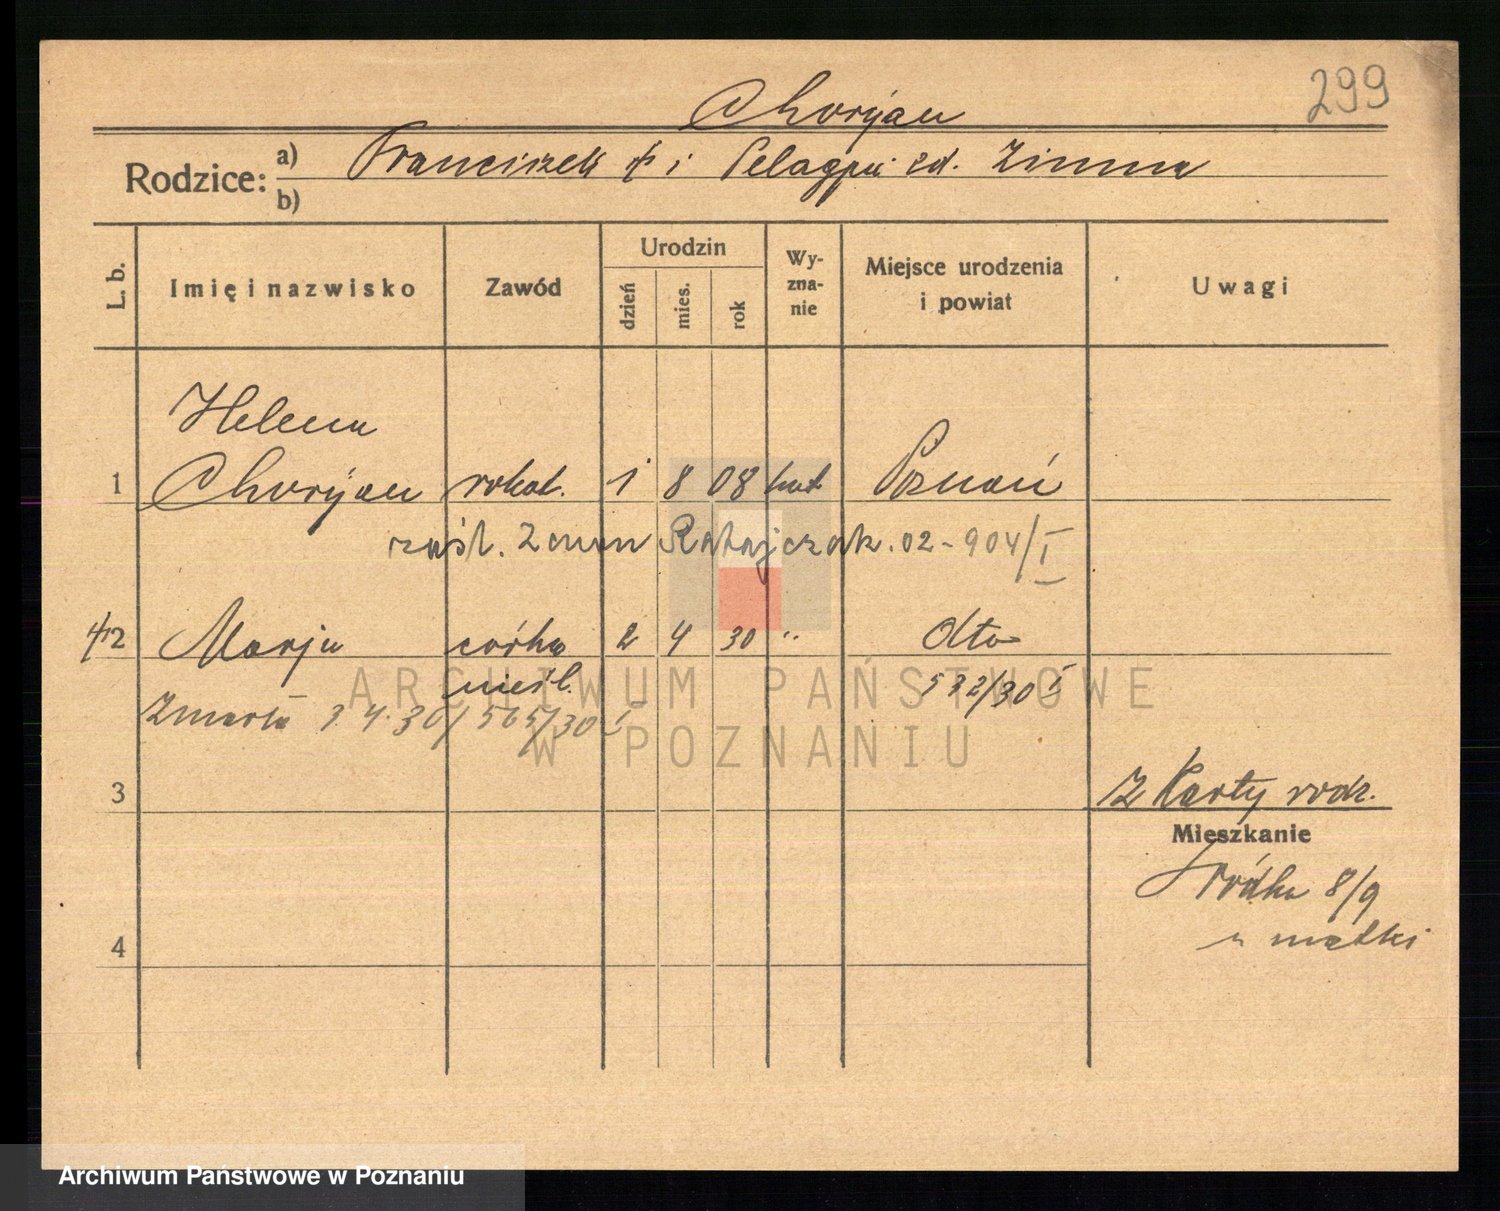 299
Choryan
Rodzice: a) Franciszek + i Pelagja zd. Zimna
b)
L. b.
Imię i nazwisko
Zawód
Urodzin
dzień
mies.
rok
Wy-
zna-
nie
Miejsce urodzenia
i powiat
Uwagi
Helena
1 Choryan robot. 1 8 08 kat Poznań
zaśl. Zenon Ratajczak. 02-904/I
2 Marja córka 2 4 30 " dto
nieśl. 532/30 I
Zmarła 3.4.30/565/30 I
3
Z Karty rodz.
Mieszkanie
Śródka 8/9
u matki
4
ARCHIWUM PAŃSTWOWE
W POZNANIU
Archiwum Państwowe w Poznaniu